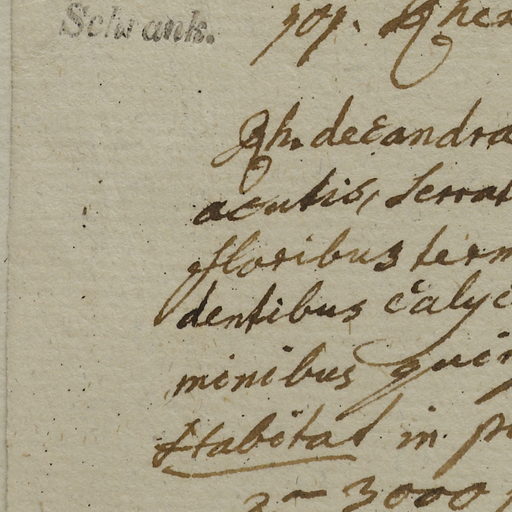 Schrank.
Rh. decandra
acutis, serrat
floribus term
dentibus calyc
minibus quin
Habitat in p
3000